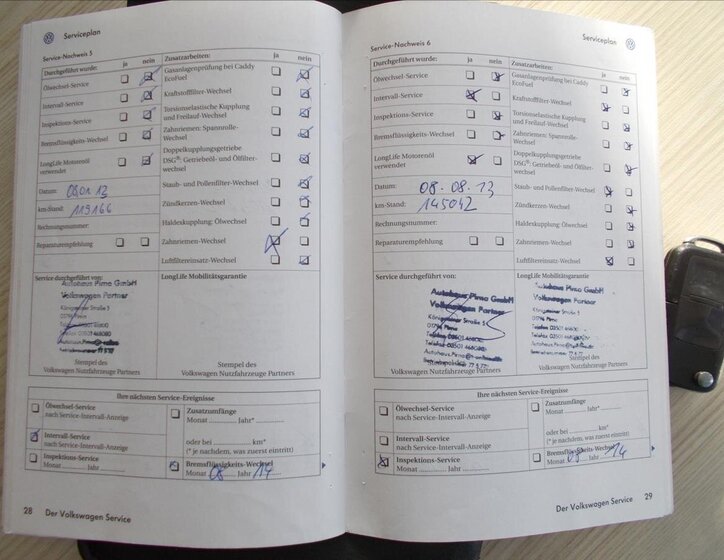 Serviceplan
Service-Nachweis 5
Durchgeführt wurde: ja nein
Ölwechsel-Service
Intervall-Service
Inspektions-Service
Bremsflüssigkeits-Wechsel
LongLife Motorenöl
verwendet
Datum:
km-Stand: 119166
Rechnungsnummer:
Reparaturempfehlung
Zusatzarbeiten: ja nein
Gasanlagenprüfung bei Caddy
EcoFuel
Kraftstofffilter-Wechsel
Torsionselastische Kupplung
und Freilauf-Wechsel
Zahnriemen: Spannrolle-
Wechsel
Doppelkupplungsgetriebe
DSG®: Getriebeöl- und Ölfilter-
wechsel
Staub- und Pollenfilter-Wechsel
Zündkerzen-Wechsel
Haldexkupplung: Ölwechsel
Zahnriemen-Wechsel
Luftfiltereinsatz-Wechsel
Service durchgeführt von:
Autohaus Pirna GmbH
Volkswagen Partner
Königsteiner Straße 5
01796 Pirna
Telefon 03501 468080
Stempel des
Volkswagen Nutzfahrzeuge Partners
LongLife Mobilitätsgarantie
Stempel des
Volkswagen Nutzfahrzeuge Partners
Ihre nächsten Service-Ereignisse
Ölwechsel-Service
nach Service-Intervall-Anzeige
Intervall-Service
nach Service-Intervall-Anzeige
Inspektions-Service
Monat ............ Jahr ............
Zusatzumfänge
Monat ............ Jahr* ............
oder bei ............ km*
(* je nachdem, was zuerst eintritt)
Bremsflüssigkeits-Wechsel
Monat 08 Jahr 14
28 Der Volkswagen Service
Serviceplan
Service-Nachweis 6
Durchgeführt wurde: ja nein
Ölwechsel-Service
Intervall-Service
Inspektions-Service
Bremsflüssigkeits-Wechsel
LongLife Motorenöl
verwendet
Datum: 08.08.13
km-Stand: 145042
Rechnungsnummer:
Reparaturempfehlung
Zusatzarbeiten: ja nein
Gasanlagenprüfung bei Caddy
EcoFuel
Kraftstofffilter-Wechsel
Torsionselastische Kupplung
und Freilauf-Wechsel
Zahnriemen: Spannrolle-
Wechsel
Doppelkupplungsgetriebe
DSG®: Getriebeöl- und Ölfilter-
wechsel
Staub- und Pollenfilter-Wechsel
Zündkerzen-Wechsel
Haldexkupplung: Ölwechsel
Zahnriemen-Wechsel
Luftfiltereinsatz-Wechsel
Service durchgeführt von:
Autohaus Pirna GmbH
Volkswagen Partner
Königsteiner Straße 5
01796 Pirna
Telefon 03501 468080
Stempel des
Volkswagen Nutzfahrzeuge Partners
LongLife Mobilitätsgarantie
Autohaus Pirna GmbH
Volkswagen Partner
Königsteiner Straße 5
01796 Pirna
Telefon 03501 468080
Stempel des
Volkswagen Nutzfahrzeuge Partners
Ihre nächsten Service-Ereignisse
Ölwechsel-Service
nach Service-Intervall-Anzeige
Intervall-Service
nach Service-Intervall-Anzeige
Inspektions-Service
Monat ............ Jahr ............
Zusatzumfänge
Monat ............ Jahr* ............
oder bei ............ km*
(* je nachdem, was zuerst eintritt)
Bremsflüssigkeits-Wechsel
Monat 08 Jahr 14
Der Volkswagen Service 29